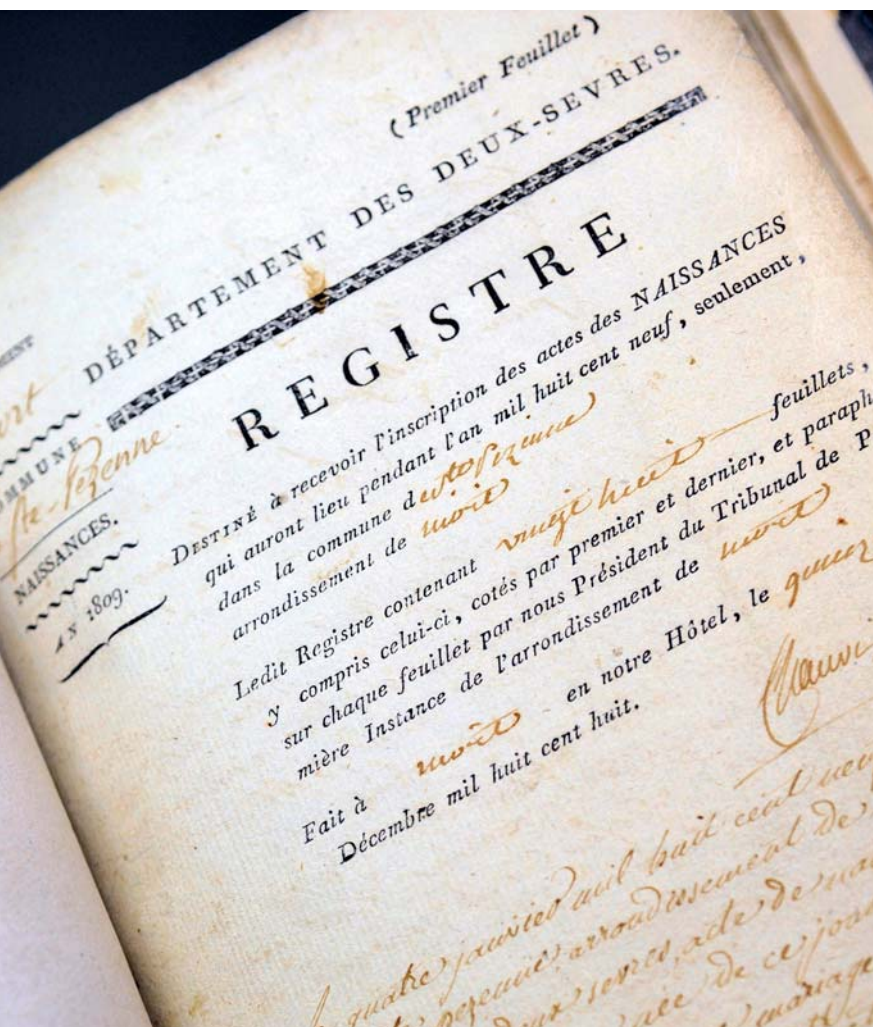 (Premier Feuillet)
DÉPARTEMENT DES DEUX-SEVRES.
REGISTRE
COMMUNE
Ste-Pezenne
NAISSANCES.
AN 1809.
DESTINÉ à recevoir l'inscription des actes des NAISSANCES
qui auront lieu pendant l'an mil huit cent neuf, seulement,
dans la commune de ste Pezenne
arrondissement de niort
Ledit Registre contenant vingt huit feuillets,
y compris celui-ci, cotés par premier et dernier, et paraph
sur chaque feuillet par nous Président du Tribunal de P
mière Instance de l'arrondissement de niort
Fait à niort en notre Hôtel, le
Décembre mil huit cent huit.
quatre janvier mil huit cent neuf
Pezenne arrondissement de
deux sevres, acte de
de ce jour
mariage